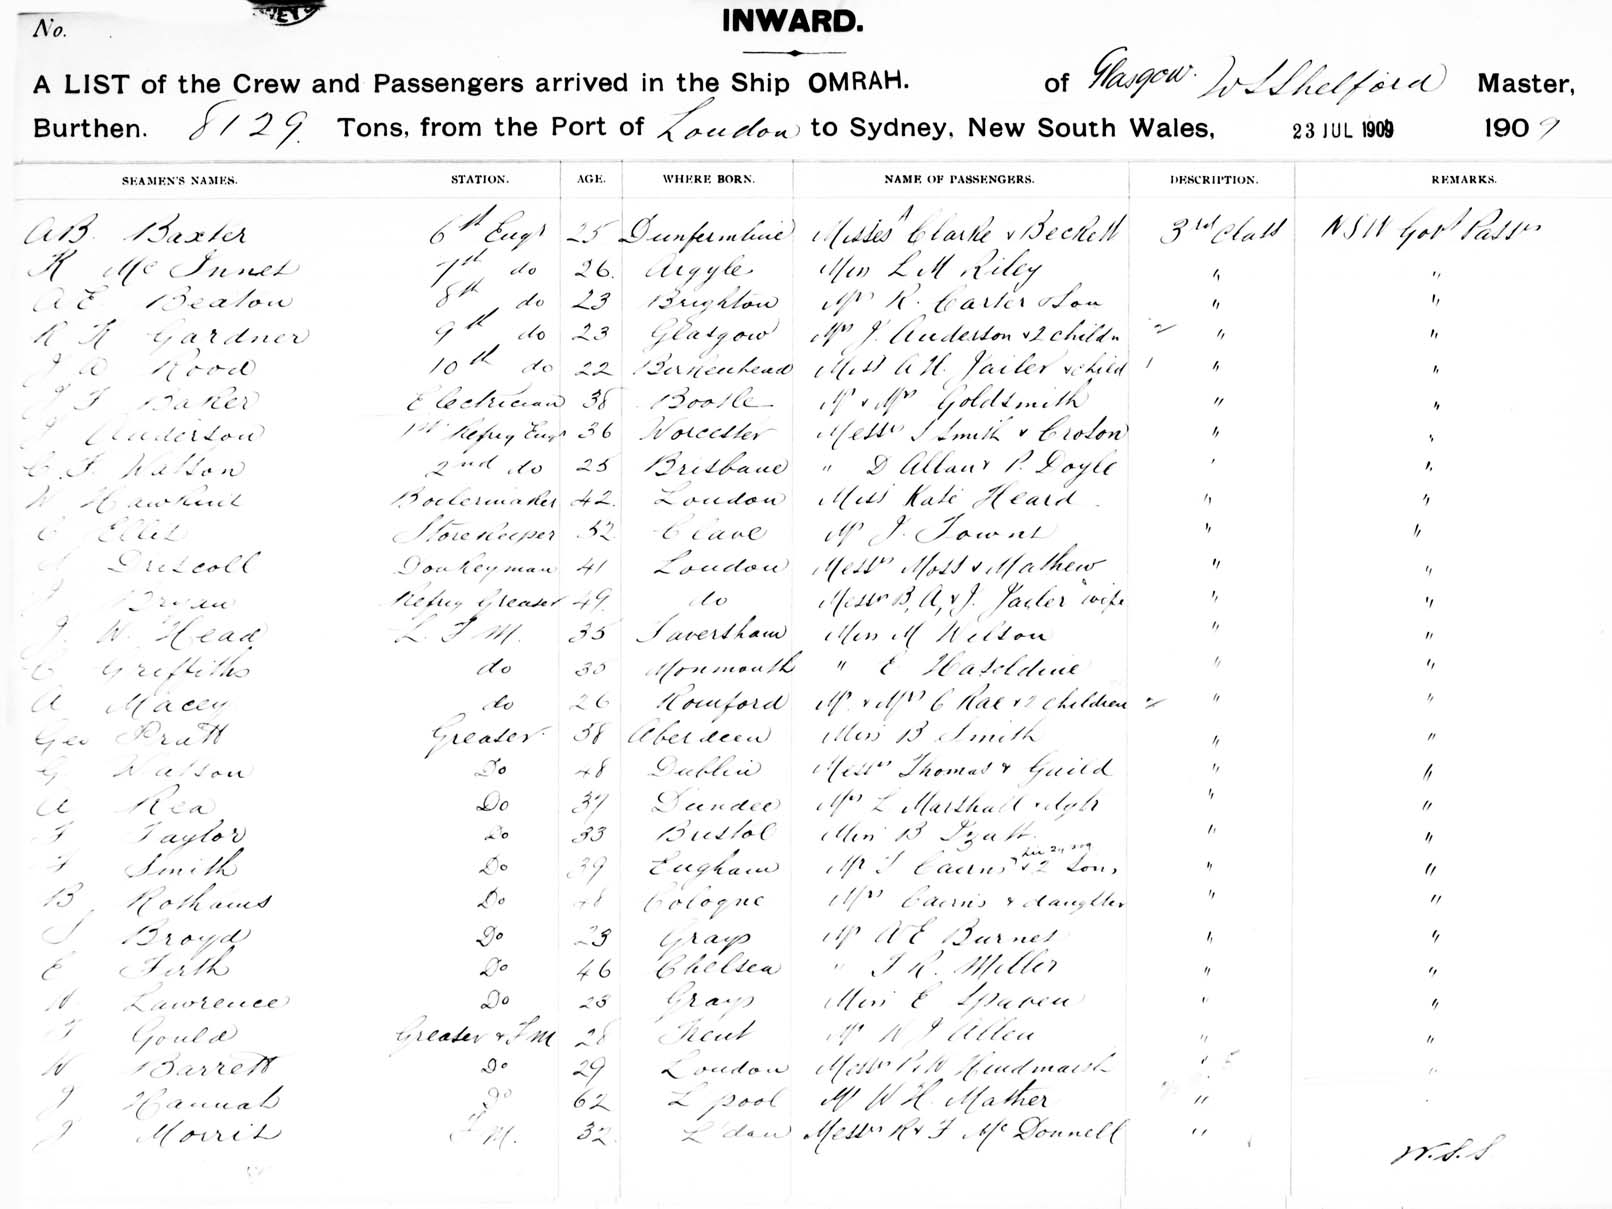 No.
INWARD.
A LIST of the Crew and Passengers arrived in the Ship OMRAH. of Glasgow. W S Shelford Master,
Burthen. 8129. Tons, from the Port of London to Sydney, New South Wales, 23 JUL 1909 1909
SEAMEN'S NAMES. STATION. AGE. WHERE BORN. NAME OF PASSENGERS. DESCRIPTION. REMARKS.
A B. Baxter 6th Engr 25 Dunfermline Misses Clarke & Beckett 3rd Class NSW Govt Passrs
R Mc Innes 7th do 26. Argyle Miss L M Riley " "
A E Beaton 8th do 23 Brighton Mrs R. Carter & Son " "
R K Gardner 9th do 23 Glasgow Mrs J. Anderson & 2 childn 2 " "
J A Rood 10th do 22 Birkenhead Miss A H. Jailer & child 1 " "
J F Baker Electrician 38 Bootle Mr & Mrs Goldsmith " "
J Anderson 1st Refrig Engr 36 Worcester Messrs J Smith & Croton " "
C. F. Watson 2nd do 25 Brisbane " D Allan & P. Doyle " "
W Hawkins Boilermaker 42. London Miss Kate Heard " "
C Ellis Storekeeper 52 Cleave Mr J. Towns " "
Driscoll Donkeyman 41 London Messrs Moss & Mathew " "
Bryan Refrig Greaser 49. do Messrs B, A, & J. Jailer "wife " "
J. W. Head L. F M. 35 Faversham Miss M Wilson " "
C Griffiths do 30 Monmouth " E Haseldine " "
A Macey do 26 Romford Mr & Mrs C Rae & 2 children 2 " "
Geo Pratt Greaser 58 Aberdeen Miss B Smith " "
G Watson Do 48 Dublin Messrs Thomas & Guild " "
A Rea Do 37 Dundee Mrs L Marshall & dgtr " "
F Taylor Do 33 Bristol Miss B " "
Smith Do 39 Engham Mr T Cairns & 2 Sons " "
B Rothams Do 48 Cologne Mrs Cairns & daughter " "
S Broyd Do 23 Grays Mr A E Burnes " "
E Firth Do 46 Chelsea " T R. Miller " "
W Lawrence Do 25 Grays Miss E Spaven " "
F Gould Greaser & FM 28 Kent Mr W J Allen " "
W Barrett Do 29 London Messrs P. W Hindmarsh " "
J Hannah Do 62 L'pool Mr W H. Mather "
J Morris F M. 32 L'don Messrs R & F McDonnell "
W.S.S